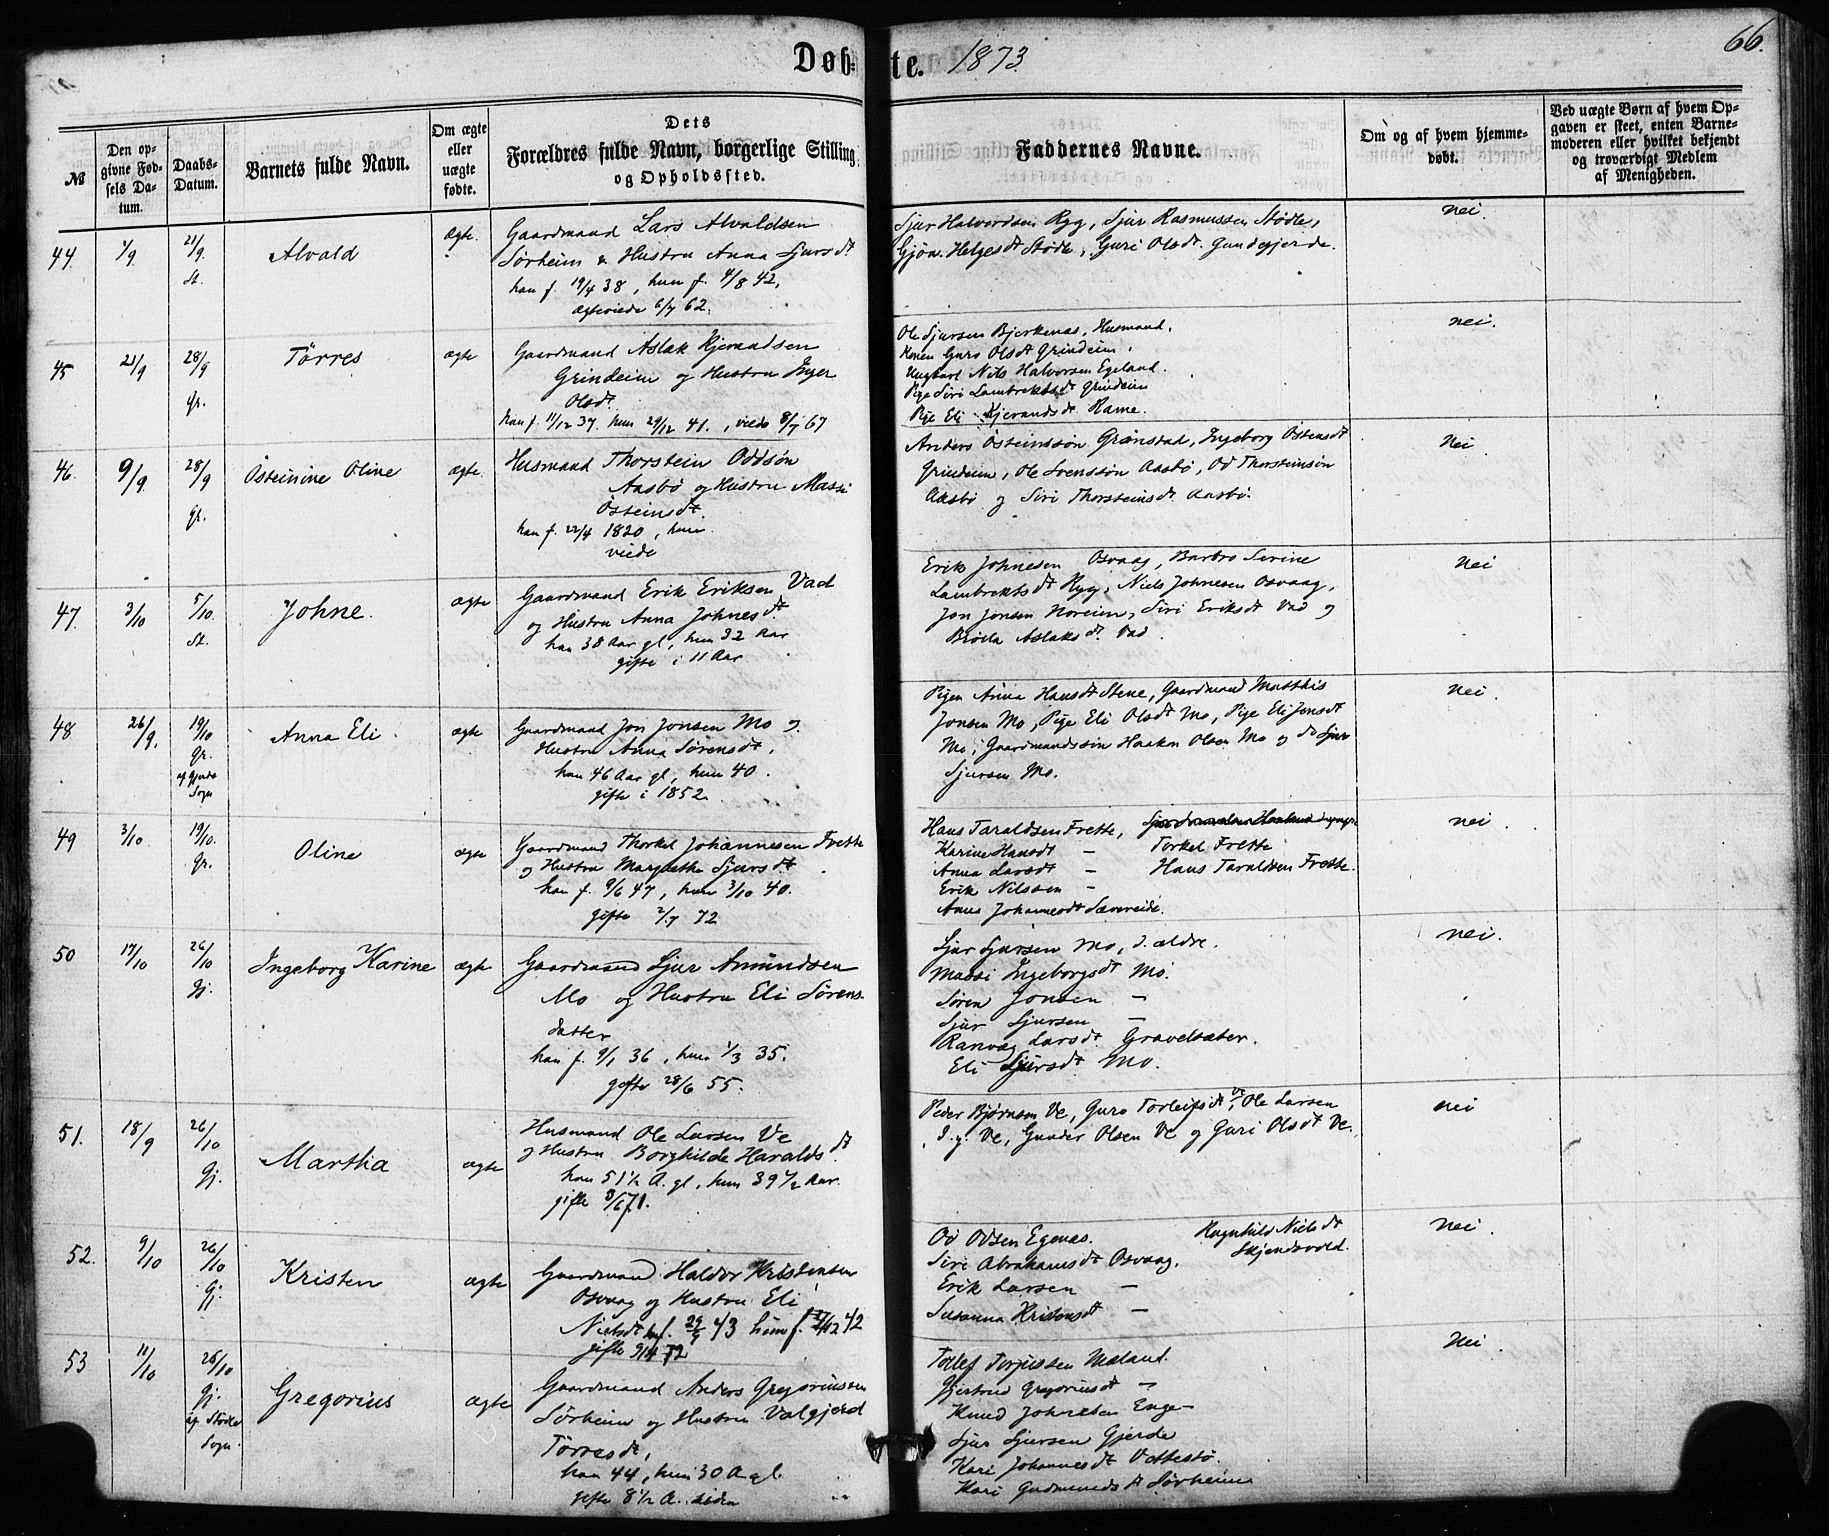 Döbte. 1873. 66.
№
Den opgivne Fødsels Datum.
Daabs-Datum.
Barnets fulde Navn.
Om ægte eller uægte fødte.
Dets Forældres fulde Navn, borgerlige Stilling og Opholdssted.
Faddernes Navne.
Om og af hvem hjemmedøbt.
Ved uægte Børn af hvem Opgaven er skeet, enten Barnemoderen eller hvilket bekjendt og troværdigt Medlem af Menigheden.
44. 1/9 21/9 St. Alvald ægte.
Gaardmand Lars Alvaldsen
Sørheim & Hustru Anna Sjursdt
han f. 19/4 38, hun f. 4/8 42,
ægteviede 6/7 62.
Sjur Halvordsen Ryg, Sjur Rasmussen Stødle,
Gjøn. Helgesdt Stødle, Guri Olsdt. Gundegjerde.
nei.
45 21/9 28/9 Gr. Tørres ægte
Gaardmand Aslak Kjerandsen
Grindeim og Hustru Inger
Olsdt.
han f. 11/12 37 hun 29/12 41., viede 8/7 67
Ole Sjursen Bjerkenæs, Husmand.
Konen Guro Olsdt Grindeim.
Ungkarl Nils Halvorsen Egeland.
Pige Siri Lambrektsdt Grindeim
Pige Eli Kjerandsdt. Rame.
nei.
46. 9/9 28/9 Gr. Østeinine Oline ægte.
Husmand Thorstein Oddsøn
Aasbø og Hustru Massi
Østeinsdt.
han f. 22/4 1820, hun
viede
Anders Østeinssøn Grønstad, Ingeborg Østensdt
Grindeim, Ole Svenssøn Aasbø, Od Thorsteinsøn
Aasbø og Siri Thorsteinsdt Aasbø.
Nei
47. 3/10 5/10. St. Johne. ægte
Gaardmand Erik Eriksen Vad
og Hustru Anna Johnesdt
han 38 Aar gl, hun 32 Aar
gifte i 11 Aar
Erik Johnesen Osvaag, Barbro Serine
Lambrektsdt Ryg, Niels Johnesen Osvaag,
Jon Jonsen Noreim, Siri Eriksdt Vad og
Brøtla Aslaksdt. Vad.
Nei
48 26/9. 19/10 Gr. af Gjerde Sogn Anna Eli. ægte
Gaardmand Jon Jonsen Mo og
Hustru Anna Sørensdt.
han 46 Aar gl, hun 40.
gifte i 1852.
Pigen Anna Hansdt Stene, Gaardmand Matthis
Jonsen Mo, Pige Eli Olsdt Mo, Pige Eli Jonsdt
Mo, Gaardmandssøn Haakon Olsen Mo og do Sjur
Sjursen Mo.
Nei.
49 3/10 19/10. Gr. Oline ægte
Gaardmand Thorkel Johannesen Frette
og Hustru Margrethe Sjursdt
han f. 9/6 47, hun 3/10 40.
gifte 2/7 72
Hans Taraldsen Frette,
Karine Hansdt — Torkel Frette
Anna Larsdt — Hans Taraldsen Frette.
Erik Nilssen —
Anna Johannesdt Sævereide.
nei.
50 17/10 26/10 Gj. Ingeborg Karine ægte
Gaardmand Sjur Amundsen
Mo og Hustru Eli Sørens
datter
han f. 9/1 36, hun 1/3 35.
gifte 28/6 55.
Sjur Sjursen Mo, d. ældre.
Massi Ingeborgsdt Mo.
Søren Jonsen —
Sjur Sjursen —
Ranvæg Larsdt. Gravelsæter.
Eli Sjursdt Mo.
nei.
51. 18/9 26/10 Gj. Martha ægte
Husmand Ole Larsen Ve
og Hustru Borghilde Haraldsdt
han 51 1/2 A. gl, hun 39 1/2 Aar.
gifte 8/6 71.
Peder Bjørnsen Ve, Guro Torleifsdt Ve, Ole Larsen
d. y. Ve, Gunder Olsen Ve og Guri Olsdt Ve.
nei
52. 9/10 26/10 Gj. Kristen ægte
Gaardmand Haldor Kristensen
Osvaag og Hustru Eli
Nielsdt han f. 29/9 43 hun f. 42
gifte 9/4 72
Od Odsen Egenæs. Ragnhild Nielsdt
Siri Abrahamsdt Osvaag. Skjendsvold.
Erik Larsen —
Susanna Kristensdt —
nei.
53 11/10 26/10 Gj. af Stødle Sogn. Gregorius ægte
Gaardmand Anders Gregoriussen
Sørheim og Hustru Valgjerd
Tørresdt,
han 44, hun 30 A gl
gifte 8 1/2 A. siden
Tollef Torjussen Mæland.
Gjertrud Gregoriusdt —
Knud Johnesen Enge —
Sjur Sjursen Gjerde
Kari Johannesdt Vattestø.
Kari Gudmundsdt Sørheim
Nei.